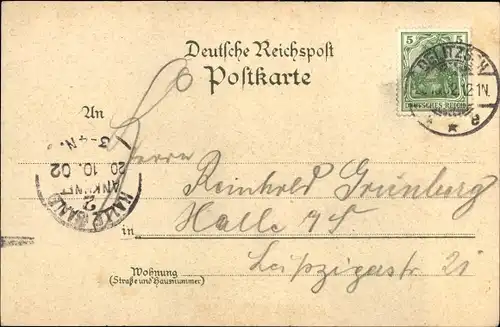 Deutsche Reichspost
Postkarte
5 5
DEUTSCHES REICH
DELITZSCH
12-1N.
* * e
An
3-4N.
20.10.02
ANKUNFT
2
HALLE (SAALE)
Herrn
Reinhold Grünberg
in Halle a/S.
Leipzigerstr 21
Wohnung
(Straße und Hausnummer)